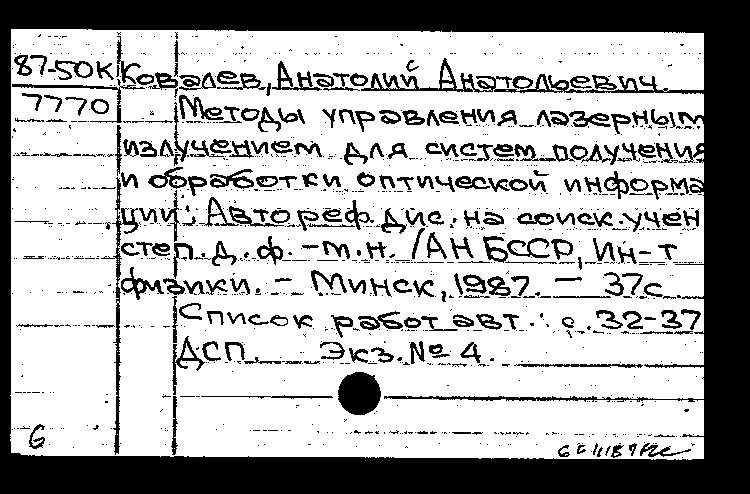 87-50К Ковалев, Анатолий Анатольевич.
7770 Методы управления лазерным
излучением для систем получения
и обработки оптической информа
ции: Автореф. дис. на соиск. учен
степ. д. ф.-м.н. /АН БССР, Ин-т
физики. - Минск, 1987. - 37с
Список работ авт.: с. 32-37
ДСП. Экз. № 4.
6